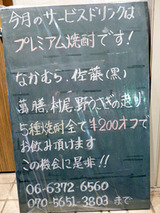 今月のサービスドリンクは
プレミアム焼酎です!
なかむら、佐藤(黒)
萬膳、村尾、野うさぎの走り
5種焼酎全て¥200オフで
お飲み頂けます
この機会に是非!!
06-6372-6560
070-5651-3803まで